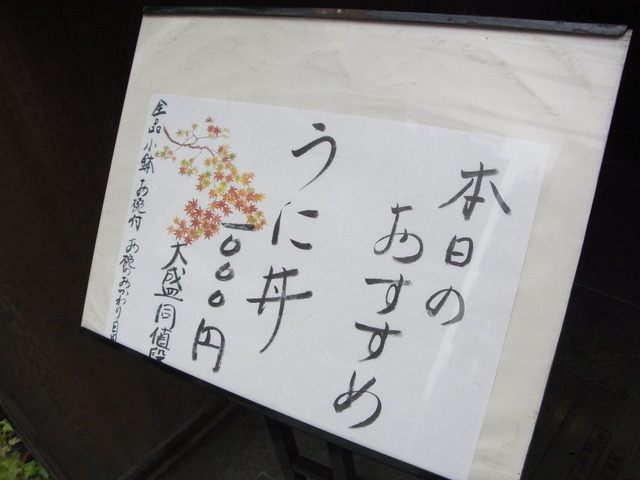 本日の
おすすめ
うに丼
一〇〇〇円
大盛同値段
全品 小鉢 お椀付 お碗のおかわり自由